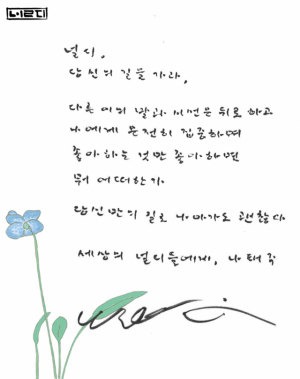 너드
널디,
당신의 길을 가라,
다른 이의 말과 시선은 뒤로 하고
나에게 온전히 집중하며
좋아하는 것만 좋아하면
뭐 어떠한가
당신만의 길로 나아가도 괜찮다
세상의 널디들에게, 나태주